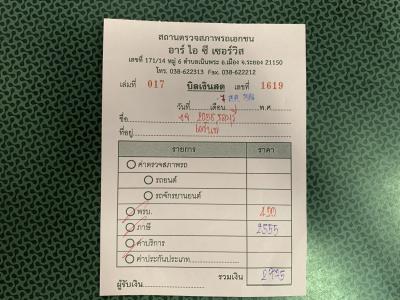 สถานตรวจสภาพรถเอกชน
อาร์ ไอ ซี เซอร์วิส
เลขที่ 171/14 หมู่ 6 ตำบลเนินพระ อ.เมือง จ.ระยอง 21150
โทร. 038-622313 Fax. 038-622212
เล่มที่ 017 บิลเงินสด เลขที่ 1619
วันที่ เดือน พ.ศ.
ชื่อ
ที่อยู่
รายการ ราคา
ค่าตรวจสภาพรถ
รถยนต์
รถจักรยานยนต์
พรบ.
ภาษี 2555
ค่าบริการ
ค่าประกันประเภท
รวมเงิน
ผู้รับเงิน